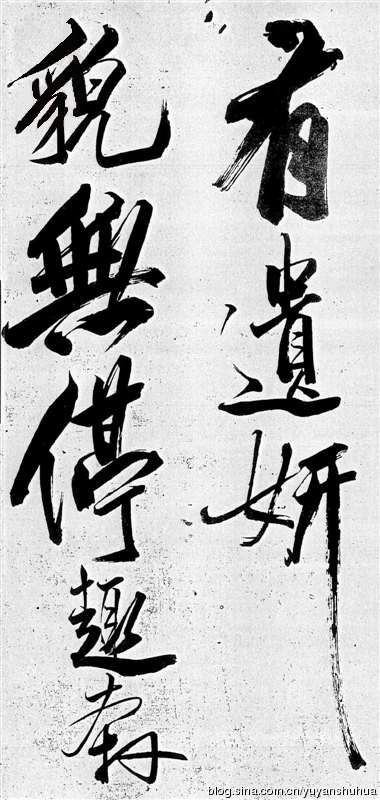 有遺妍
貌無停趣奔
blog.sina.com.cn/yuyanshuhua